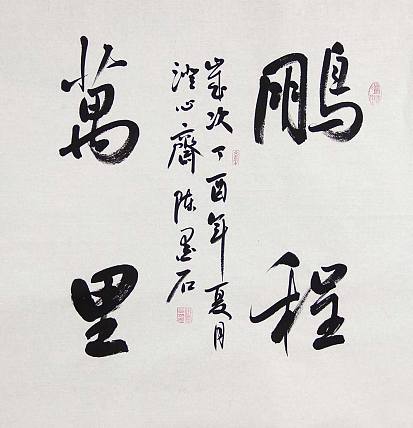 鵬程
歲次丁酉年夏月
澄心齋陈墨石
萬里